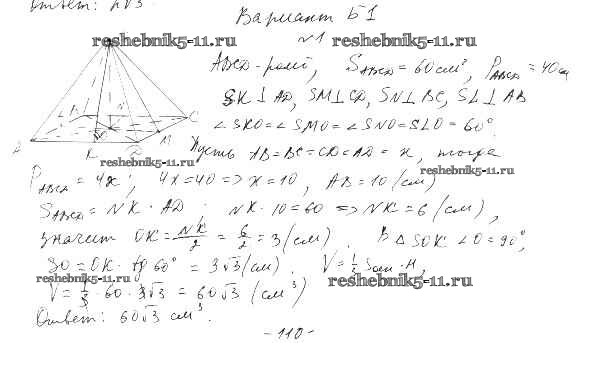 Ответ:
Вариант Б1
reshebnik5-11.ru reshebnik5-11.ru
№1
ABCD - ромб, S_ABCD = 60 см², P_ABCD = 40 см
SK ⊥ AD, SM ⊥ CD, SN ⊥ BC, SL ⊥ AB
∠SKO = ∠SMO = ∠SNO = ∠SLO = 60°.
Пусть AB = BC = CD = AD = x, тогда
L B N C A K D M
reshebnik5-11.ru reshebnik5-11.ru
P_ABCD = 4x; 4x = 40 => x = 10, AB = 10 (см)
S_ABCD = NK · AD. NK · 10 = 60 => NK = 6 (см),
значит OK = NK/2 = 6/2 = 3 (см). В △SOK ∠O = 90°,
SO = OK · tg 60° = 3√3 (см). V = 1/3 Sосн · H,
reshebnik5-11.ru reshebnik5-11.ru
V = 1/3 · 60 · 3√3 = 60√3 (см³)
Ответ: 60√3 см³.
- 110 -
reshebnik5-11.ru